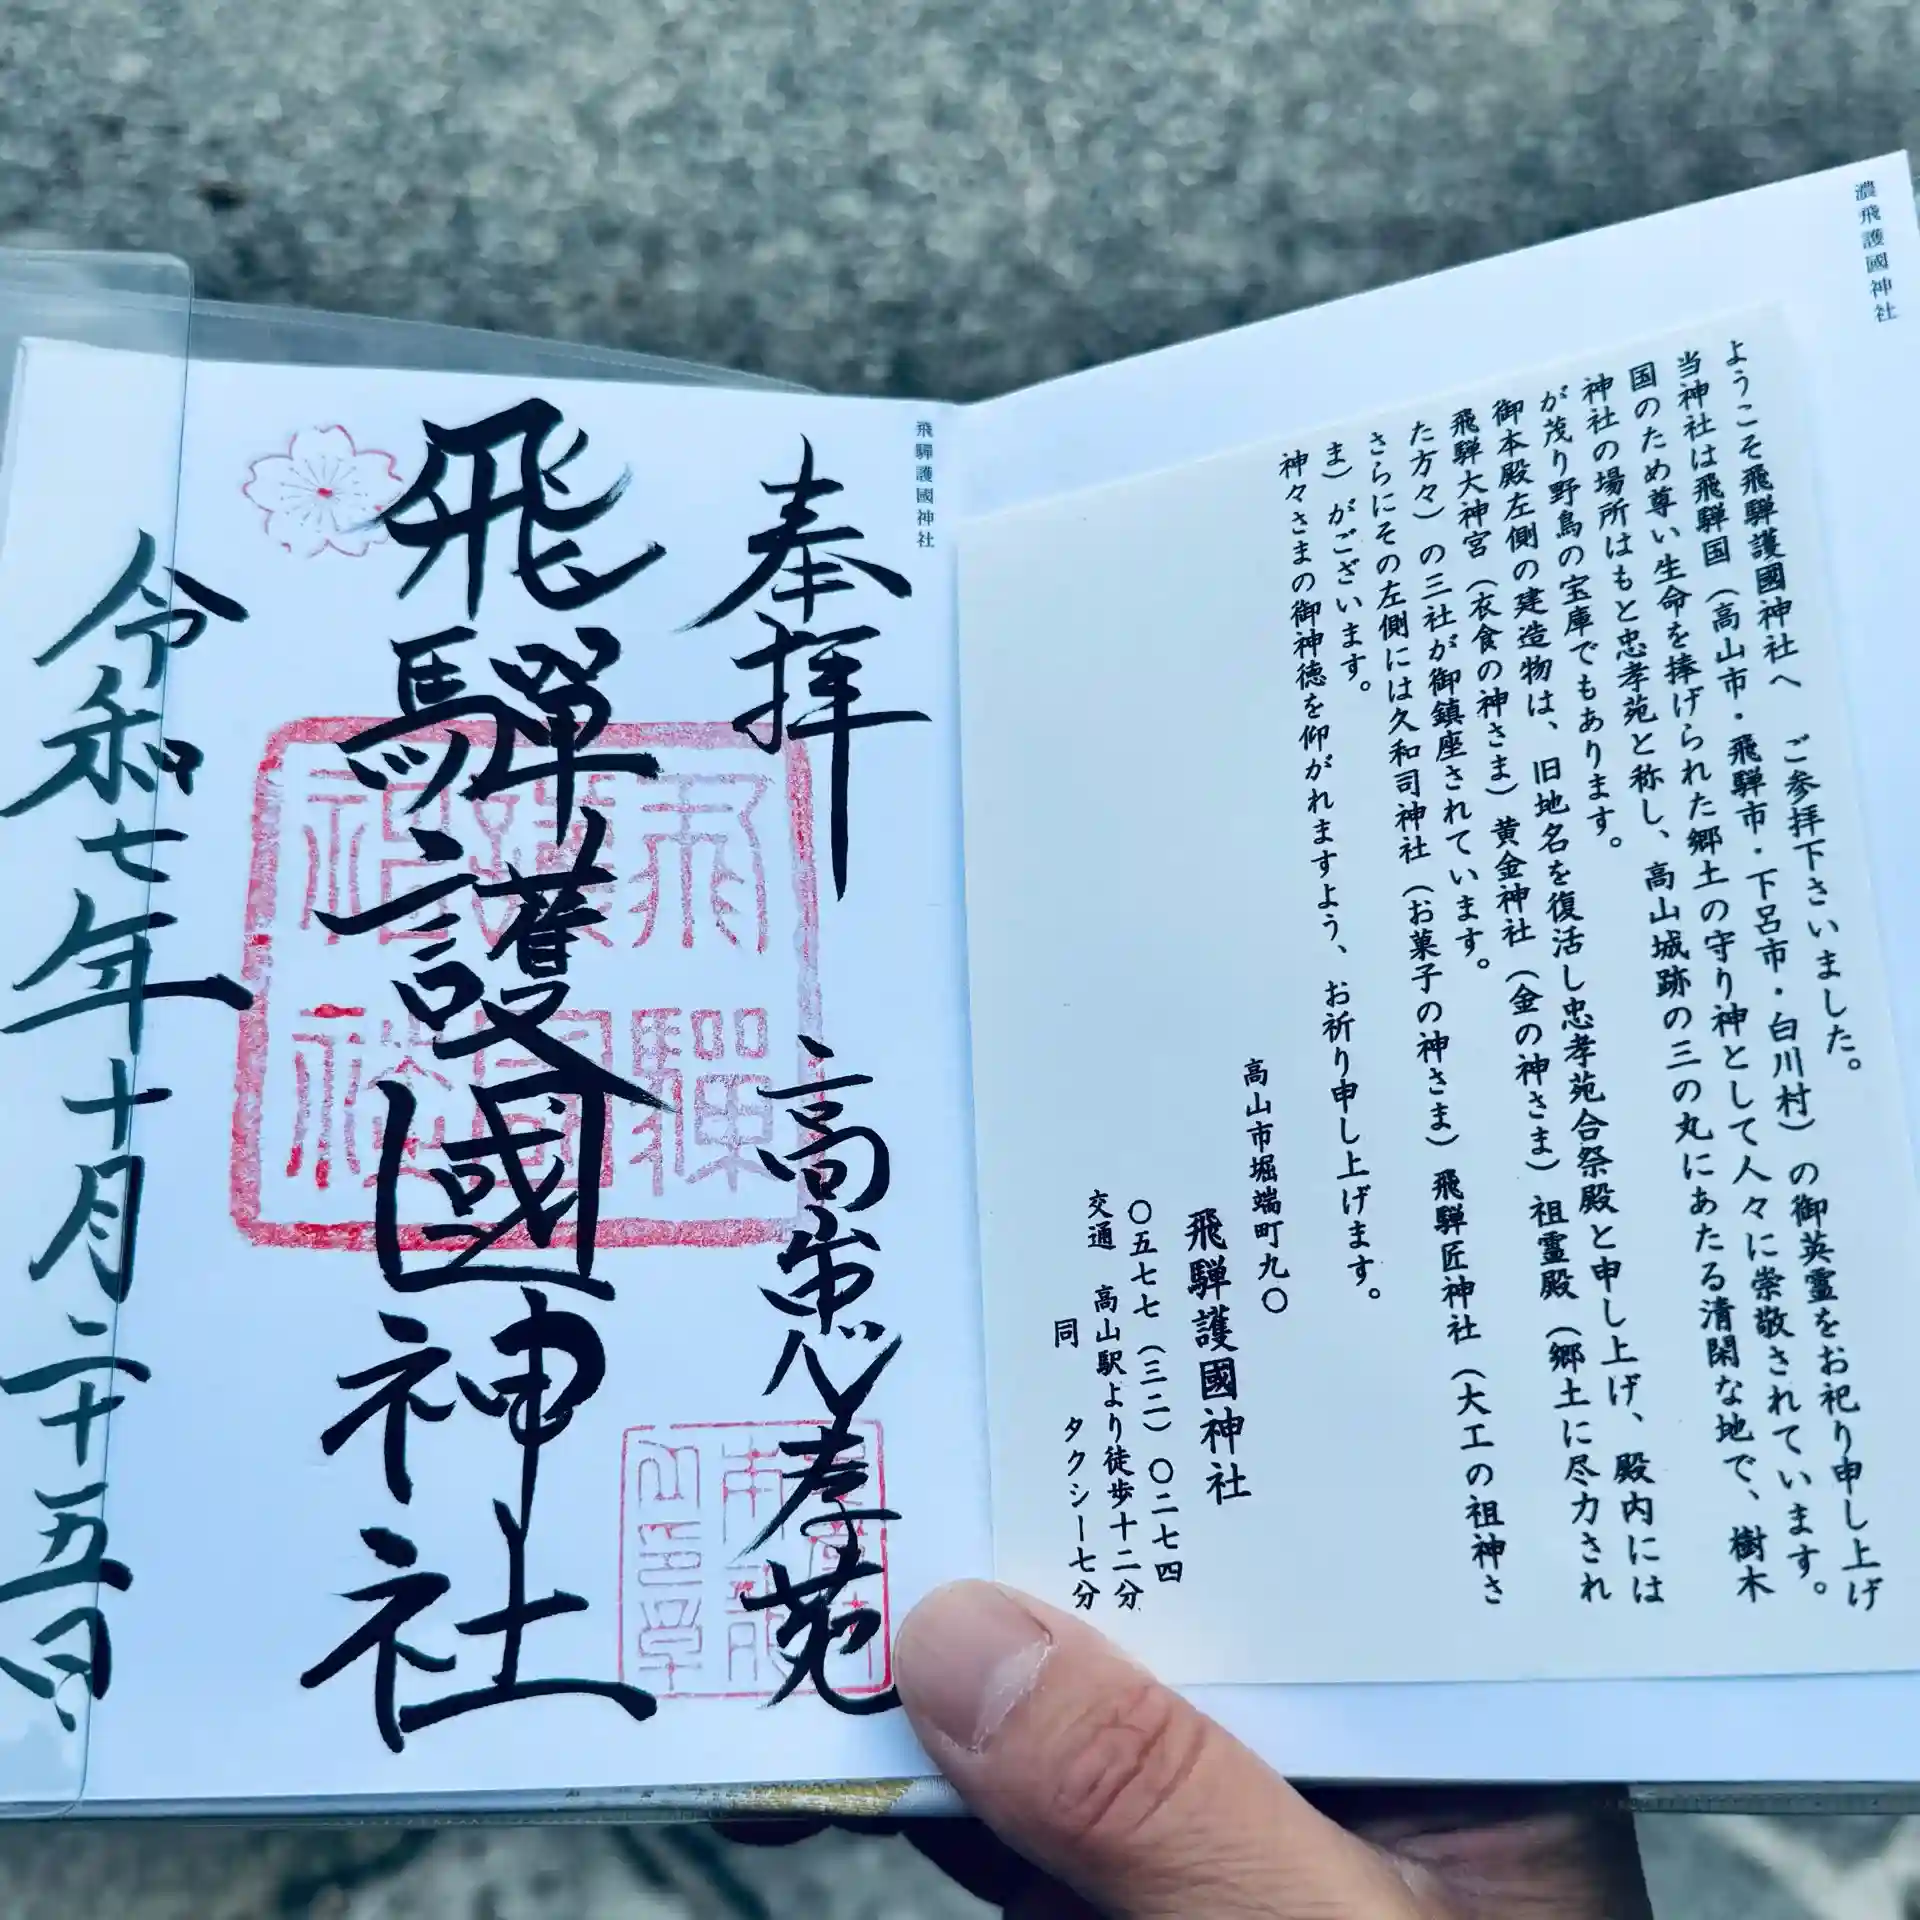 濃飛護國神社
ようこそ飛騨護國神社へ ご参拝下さいました。
当神社は飛騨国（高山市・飛騨市・下呂市・白川村）の御英霊をお祀り申し上げ
国のため尊い生命を捧げられた郷土の守り神として人々に崇敬されています。
神社の場所はもと忠孝苑と称し、高山城跡の三の丸にあたる清閑な地で、樹木
が茂り野鳥の宝庫でもあります。
御本殿左側の建造物は、旧地名を復活し忠孝苑合祭殿と申し上げ、殿内には
飛騨大神宮（衣食の神さま）黄金神社（金の神さま）祖霊殿（郷土に尽力され
た方々）の三社が御鎮座されています。
さらにその左側には久和司神社（お菓子の神さま）飛騨匠神社（大工の祖神さ
ま）がございます。
神々さまの御神徳を仰がれますよう、お祈り申し上げます。
高山市堀端町九〇
飛騨護國神社
〇五七七（三二）〇二七四
交通 高山駅より徒歩十二分
同 タクシー七分
飛騨護國神社
奉拝 高山忠孝苑
飛驒護國神社
令和七年十月二十五日